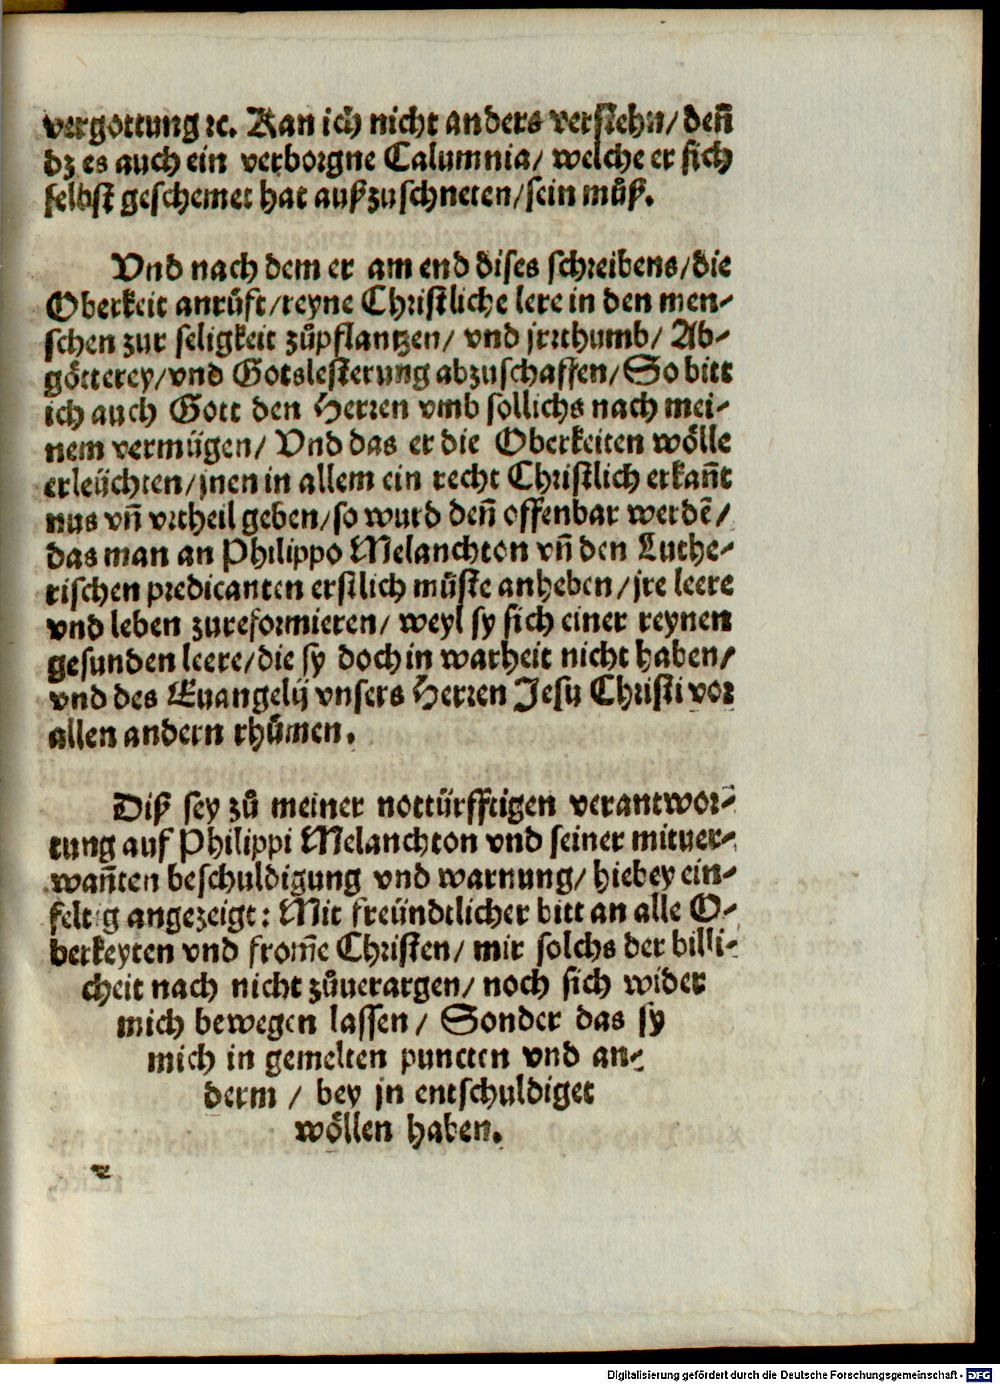 vergottung ꝛc. Kan ich nicht anders verstehn/ deñ
dz es auch ein verborgne Calumnia/ welche er sich
selbst geschemet hat außzuschneten/sein můß.
Vnd nach dem er am end dises schreibens/die
Oberkeit anrůft/reyne Christliche lere in den men-
schen zur seligkeit zůpflantzen/ vnd jrrthumb/ Ab-
götterey/vnd Gotslesterung abzuschaffen/So bitt
ich auch Gott den Herren vmb sollichs nach mei-
nem vermügen/ Vnd das er die Oberkeiten wölle
erleüchten/jnen in allem ein recht Christlich erkañt
nus vñ vrtheil geben/so wurd deñ offenbar werdẽ/
das man an Philippo Melanchton vñ den Luthe-
rischen predicanten erstlich můste anheben/jre leere
vnd leben zureformieren/ weyl sy sich einer reynen
gesunden leere/die sy doch in warheit nicht haben/
vnd des Euangelij vnsers Herren Jesu Christi vor
allen andern rhůmen.
Diß sey zů meiner nottürfftigen verantwor-
tung auf Philippi Melanchton vnd seiner mituer-
wañten beschuldigung vnd warnung/ hiebey ein-
feltig angezeigt: Mit freündtlicher bitt an alle O-
berkeyten vnd from̃e Christen/ mir solchs der billi-
cheit nach nicht zůuerargen/ noch sich wider
mich bewegen lassen/ Sonder das sy
mich in gemelten puncten vnd an-
derm / bey jn entschuldiget
wöllen haben.
Digitalisierung gefördert durch die Deutsche Forschungsgemeinschaft - DFG